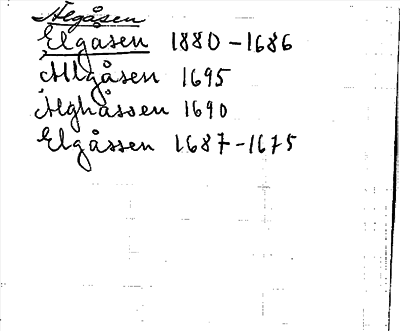 Älgåsen
Elgåsen 1880-1686
Ällgåsen 1695
Älghåssen 1690
Elgåssen 1687-1675